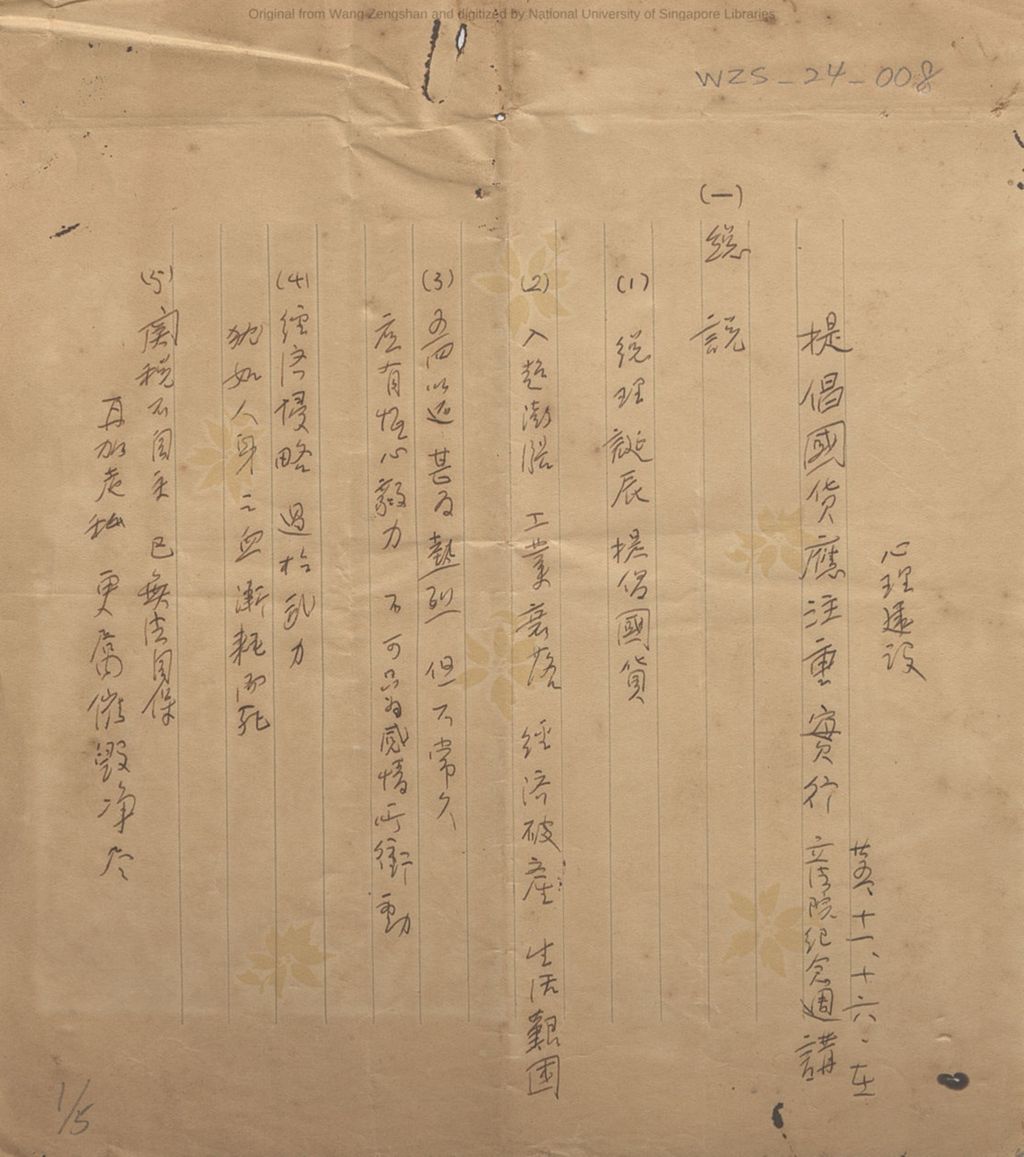 Original from Wang Zengshan and digitized by National University of Singapore Libraries
WZS-24-008
心理建設
提倡國貨應注重實行 立法院紀念週講
廿五、十一、十六、在
(一) 總說
(1) 總理誕辰提倡國貨
(2) 入超澎漲 工業衰落 經濟破產 生活艱困
(3) 以述甚為熱烈 但不常久
應有恆心毅力 不可只為感情所衝動
(4) 經濟侵略 過於武力
犹如人身之血漸耗而死
(5) 関税不自主 已無法自保
再加走私 更属摧毀净尽
1/5